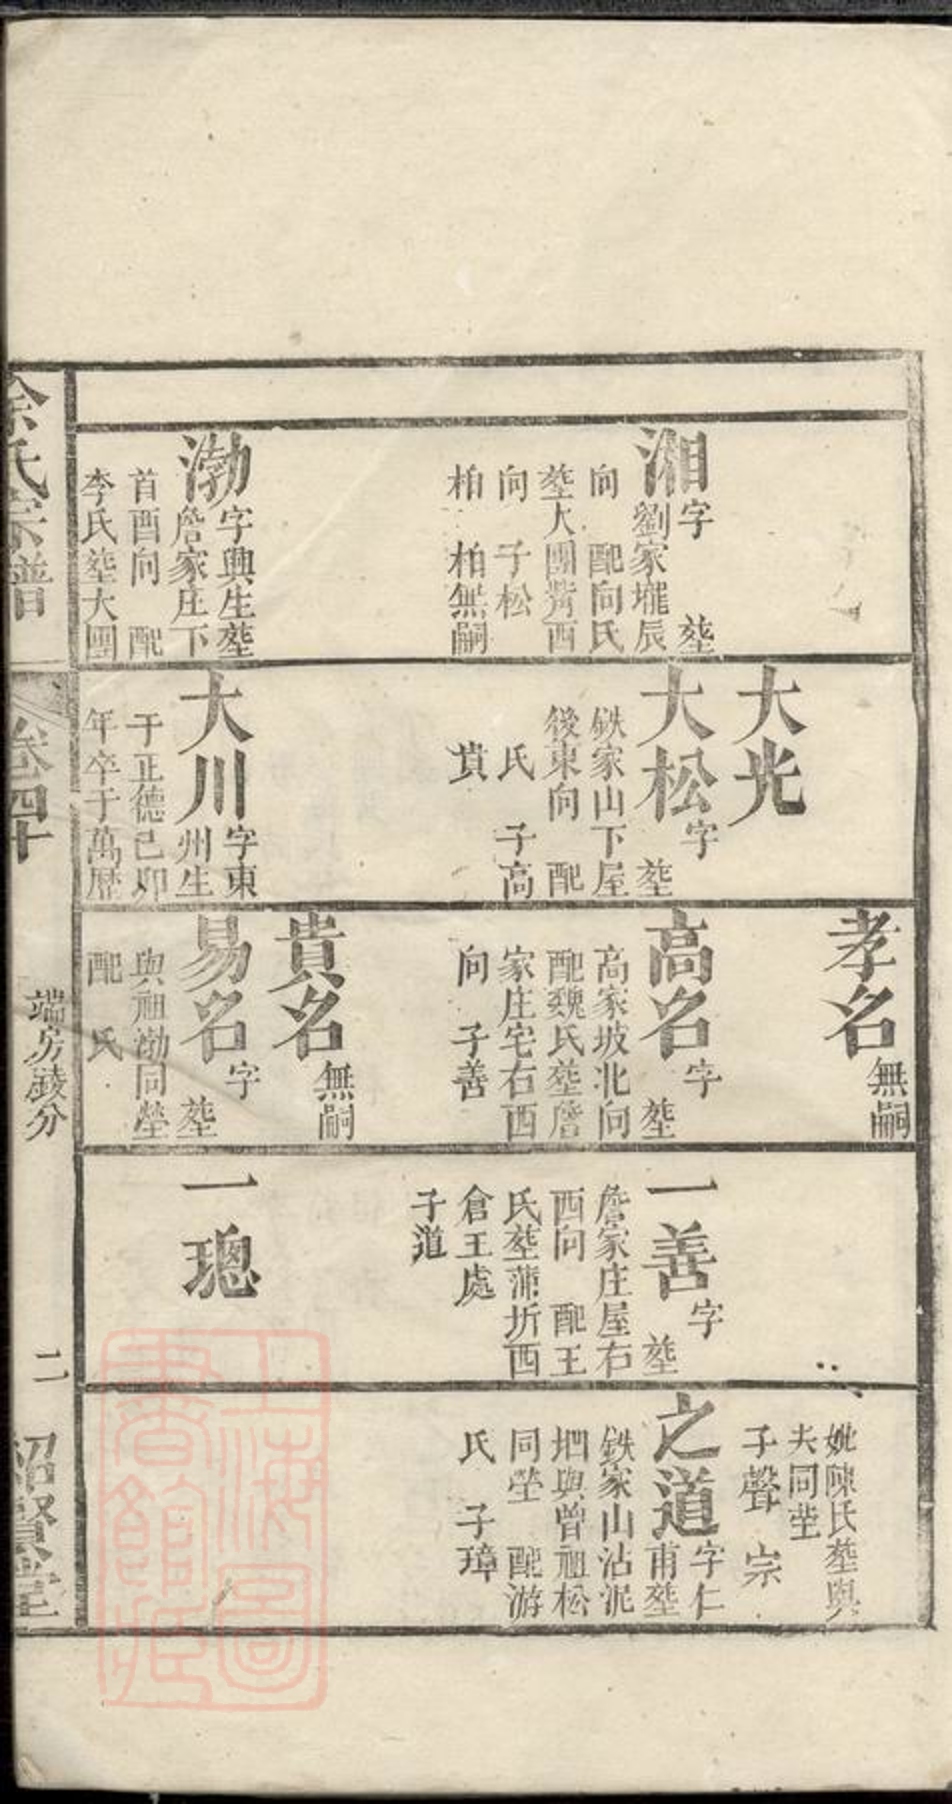 湘
字　葬
劉家壠辰
向　配向氏
葬大團觜西
向　子松
柏　柏無嗣
渤
字興生葬
詹家庄下
首酉向　配
李氏葬大團
大光
大松
字　葬
鉄家山下屋
後東向　配
氏　子高
貴
大川
字東
州生
于正德己卯
年卒于萬歷
孝名
無嗣
高名
字　葬
高家坡北向
配魏氏葬詹
家庄宅右西
向　子善
貴名
無嗣
易名
字　葬
與祖渤同塋
配　氏
一善
字　葬
詹家庄屋右
西向　配王
氏葬蒲圻西
倉王處
子道
一璁
妣陳氏葬與
夫同塋
子聲　宗
之道
字仁
甫葬
鉄家山沾泥
垇與曾祖松
同塋　配游
氏　子璋
氏宗譜
卷四十
端房𣲘分
二
紹賢堂
上海圖
書館藏